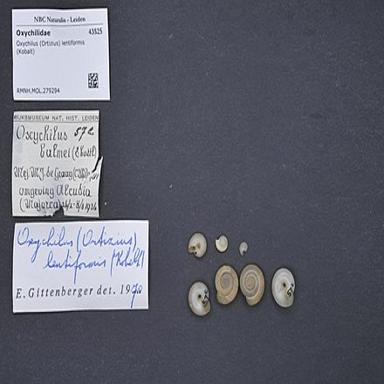 NBC Naturalis - Leiden
Oxychilidae 43525
Oxychilus (Ortizius) lentiformis
(Kobalt)
RMNH.MOL.279294
RIJKSMUSEUM NAT. HIST. LEIDEN
Oxychilus 572
(Kobelt)
Mej. M. J. de
omgeving Alcudia
(Majorca)
Oxychilus (Ortizius)
lentiformis (Kobelt)
E. Gittenberger det. 1970